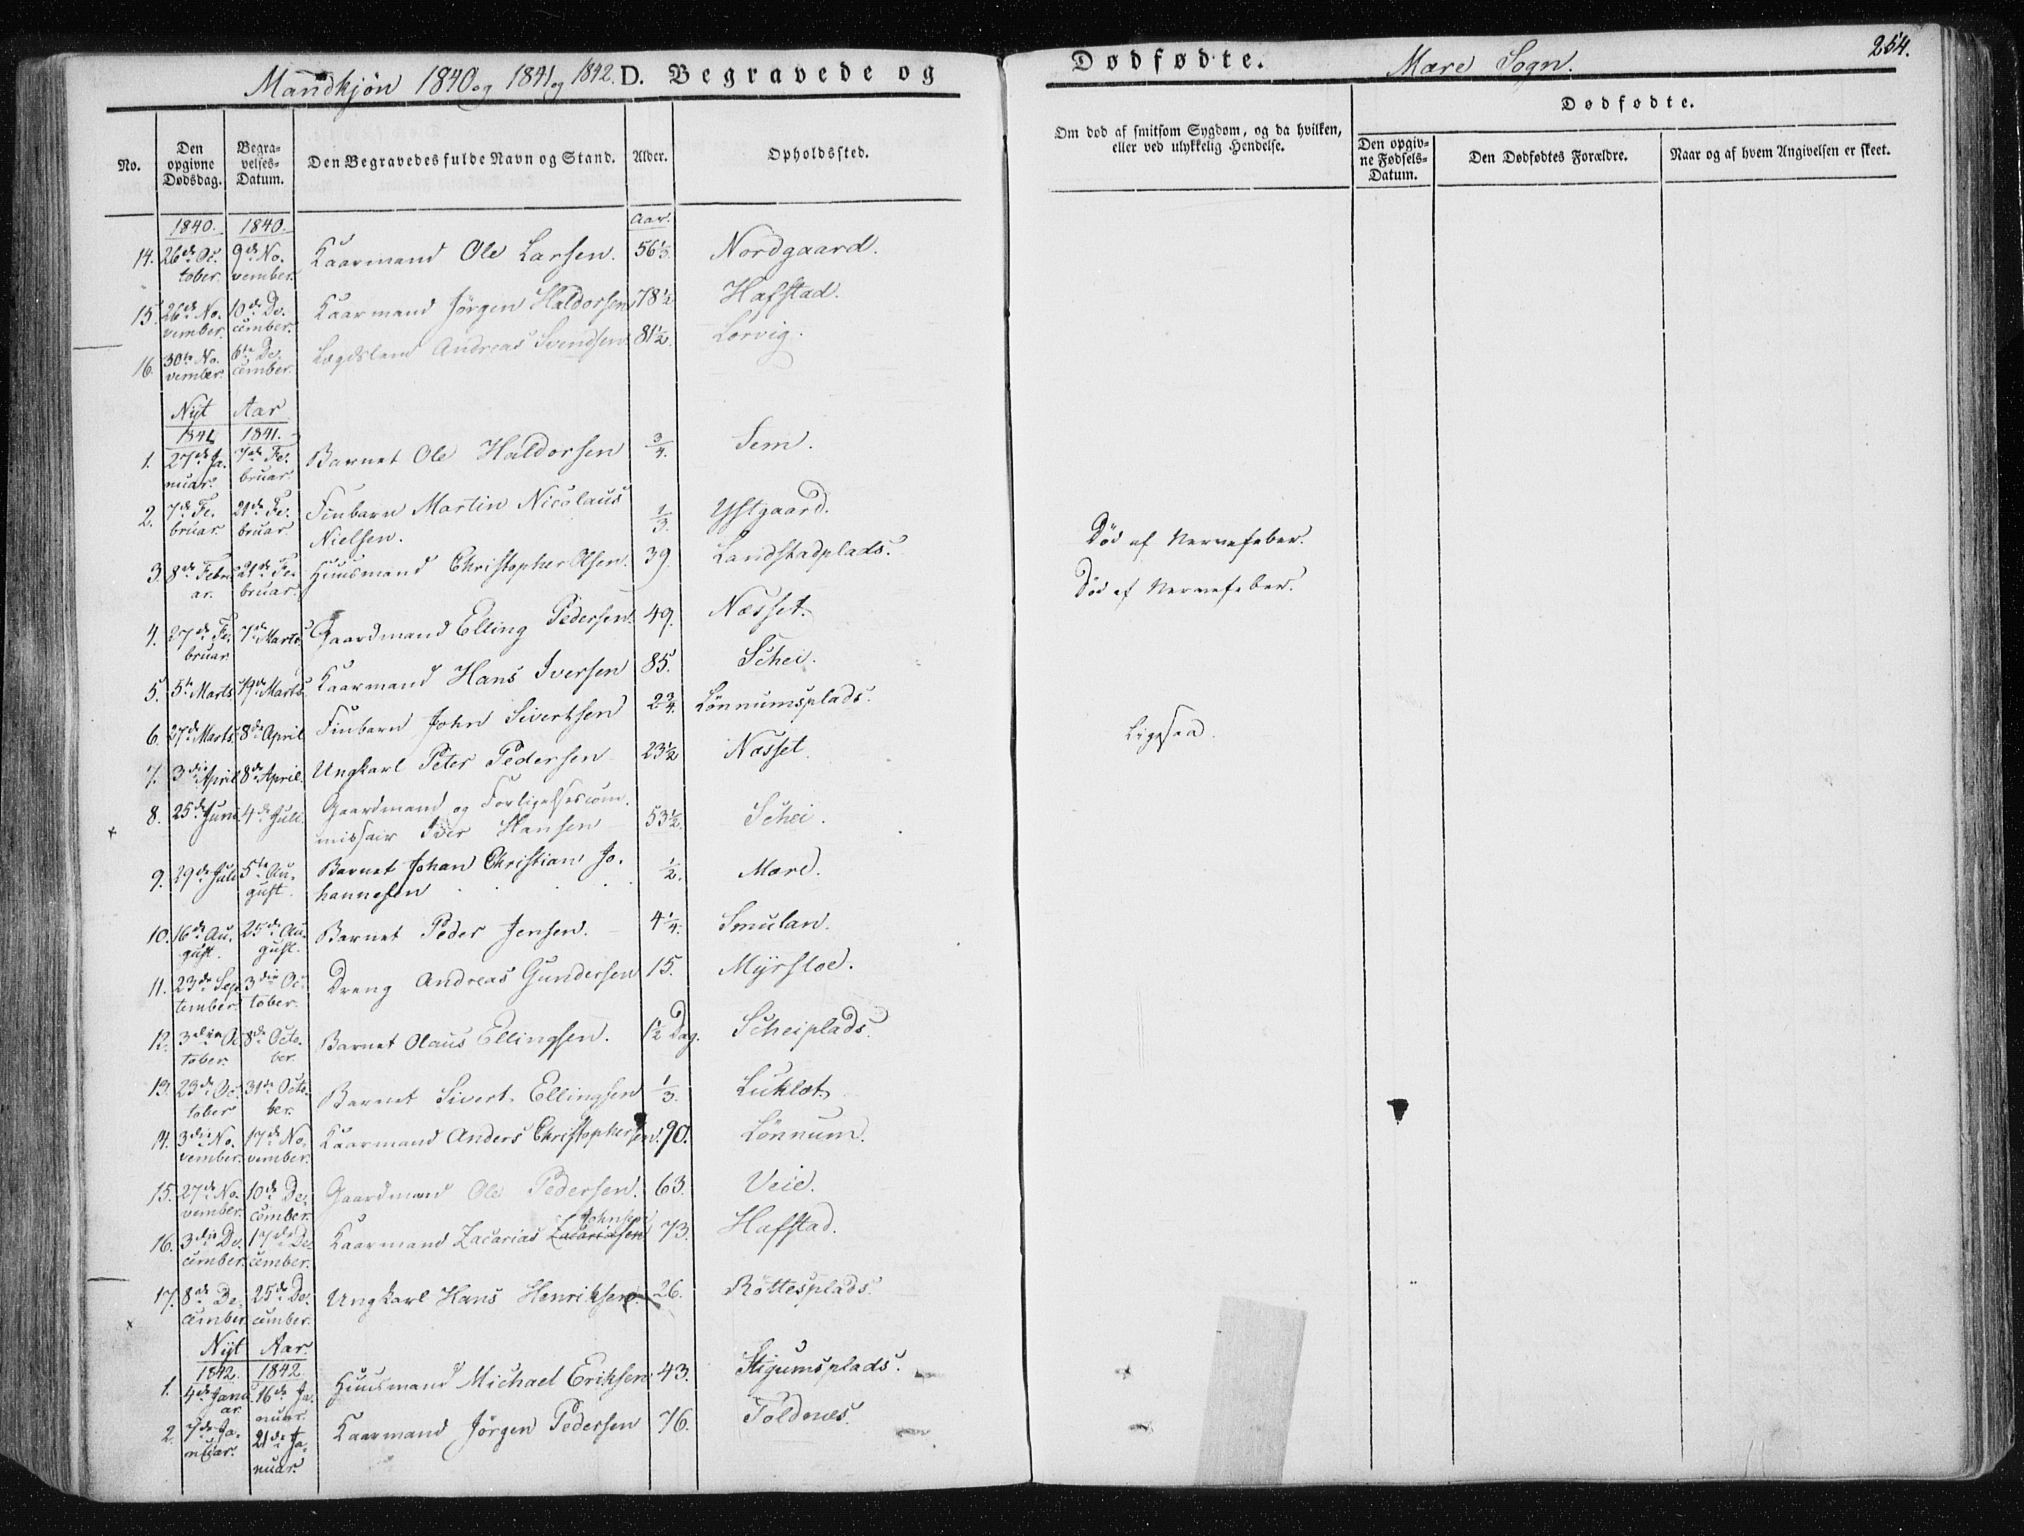 Mandkjøn 1840 og 1841 og 1842. D. Begravede og
Dødfødte.
Mære Sogn.
254.
No.
Den opgivne Dødsdag.
Begravelses-Datum.
Den Begravedes fulde Navn og Stand.
Alder.
Opholdssted.
Om død af smitsom Sygdom, og da hvilken, eller ved ulykkelig Hendelse.
Dødfødte.
Den opgivne Fødsels-Datum.
Den Dødfødtes Forældre.
Naar og af hvem Angivelsen er skeet.
1840. 1840. Aar.
14. 26de October. 9de November. Kaarmand Ole Larsen. 56 1/3. Nordgaard.
15. 26de November. 10de December. Kaarmand Jørgen Haldorsen 78 1/2 Hafstad.
16. 30te November. 6te December. Lægdslem Andreas Svendsen 81 1/2. Lorvig.
Nyt Aar
1841 1841.
1. 27de Januar. 7de Februar. Barnet Ole Haldorsen 3/4. Sem.
2. 7de Februar. 21de Februar Tinbarn Martin Nicolaus
Nielsen. 1/3. Ystgaard.
3. 8de Februar. 21de Februar. Huusmand Christopher Olsen. 39. Landstadplads. Død af Nervefeber.
4. 27de Februar. 7de Marts. Gaardmand Elling Pedersen. 49. Næsset. Død af Nervefeber.
5. 5te Marts 19de Marts. Kaarmand Hans Iversen 85. Schei.
6. 27de Marts. 8de April Tinbarn John Sivertsen 2 3/4. Lønnumsplads.
7. 3die April 8de April. Ungkarl Peter Pedersen 23 1/2 Næsset. Ligesaa.
8. 25de Juni 4de Juli. Gaardmand og Forligelsescom-
missair Iver Hansen 53 1/2. Schei.
9. 29de Juli 5te August. Barnet Johan Christian Jo-
hannesen 1/2. Mære.
10. 16de August. 25de August. Barnet Peder Jensen. 4 1/4. Smulan.
11. 23de September. 3die October. Dreng Andreas Gundersen 15. Myrstoe.
12. 3die October. 8de October. Barnet Olaus Ellingsen. 1 1/2 Dag. Scheiplads.
13. 23de October 31de October. Barnet Sivert Ellingsen 1/3. Luklæt
14. 3die November. 17de November. Kaarmand Anders Christophersen. 90. Lønnum.
15. 27de November. 10de December. Gaardmand Ole Pedersen. 63. Veie.
16. 3die December. 17de December. Kaarmand Zacarias Zacariasen Johnsen 73. Hafstad.
17. 8de December. 25de December. Ungkarl Hans Henriksen. 26. Røttesplads.
Nyt Aar.
1842. 1842
1. 4de Januar. 16de Januar. Huusmand Michael Eriksen 43. Stigumsplads.
2. 7de Januar. 21de Januar. Kaarmand Jørgen Pedersen 76. Toldnes.